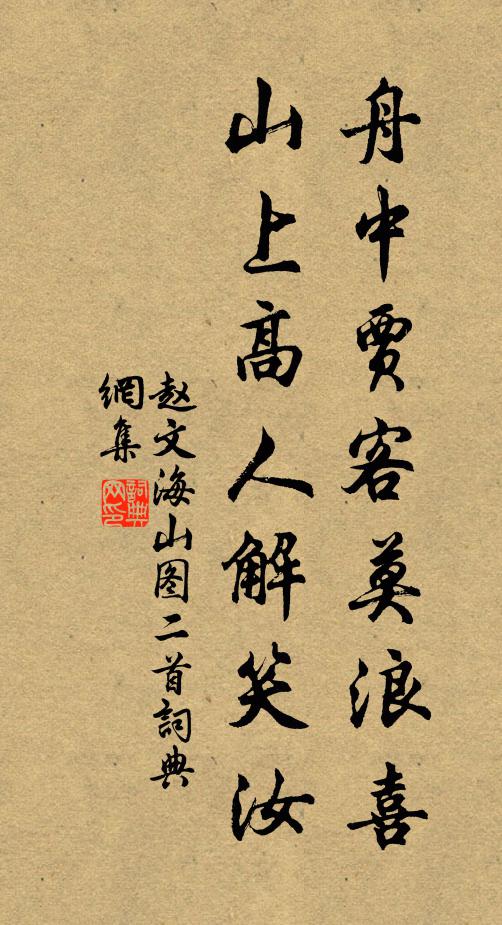 舟中賈客莫浪喜
山上高人解笑汝
赵文海山图二首詞典
網集
詞典
网印